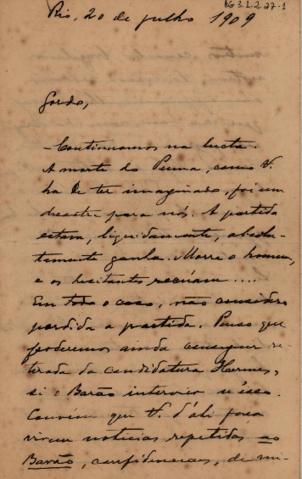 Rio, 20 de julho 1909
Gordo,
Continuamos na lucta.
A morte do Penna, como V.
ha de ter imaginado, foi um
desastre para nós. A partida
estava, liquidamente, absolu-
tamente ganha. Morre o homem,
e os hesitantes recúam....
Em todo o caso, não considero
perdida a partida. Penso que
poderemos ainda conseguir re-
tirada da candidatura Hermes,
si o Barão intervier n'isso.
Convem que V. d'ali faça
virem noticias repetidas ao
Barão, confidenciaes, de